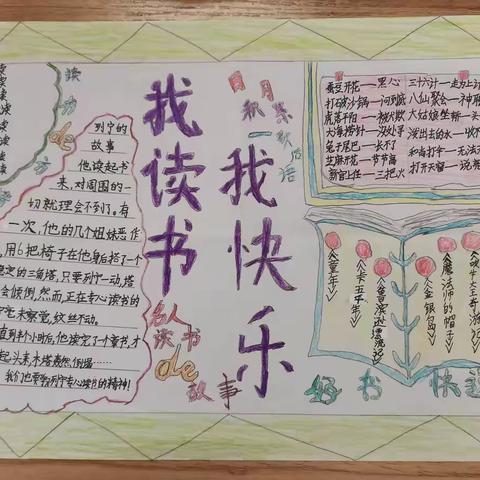 我读书
我快乐
读
书
方
法
列宁的
故事
他读起书
来,对周围的一
切就理会不到了。有
一次,他的几个姐妹恶作
用6把椅子在他身后搭了一个
稳定的三角塔,只要列宁一动,塔
会倾倒。然而,正在专心读书的
毫未察觉,纹丝不动。
直到半小时后,他读完了一个章书,才
起头来,木塔轰然倒塌……
我们也要学列宁专心读书的精神!
名人
读书
de
故事
日月
积累
歇后语
蚕豆开花——黑心
打破沙锅——问到底
虎落平阳——被犬欺
大海捞针——没处寻
兔子尾巴——长不了
芝麻开花——节节高
新官上任——三把火
三十六计——走为上计
八仙聚会——神
大姑娘坐轿——头
泼出去的水——收
和尚打伞——无法
打开天窗——说
《童年》
《上下五千年》
《鲁滨逊漂流记》
《金银岛》
《魔法师的帽子》
《吹牛大王奇游记》
好书快